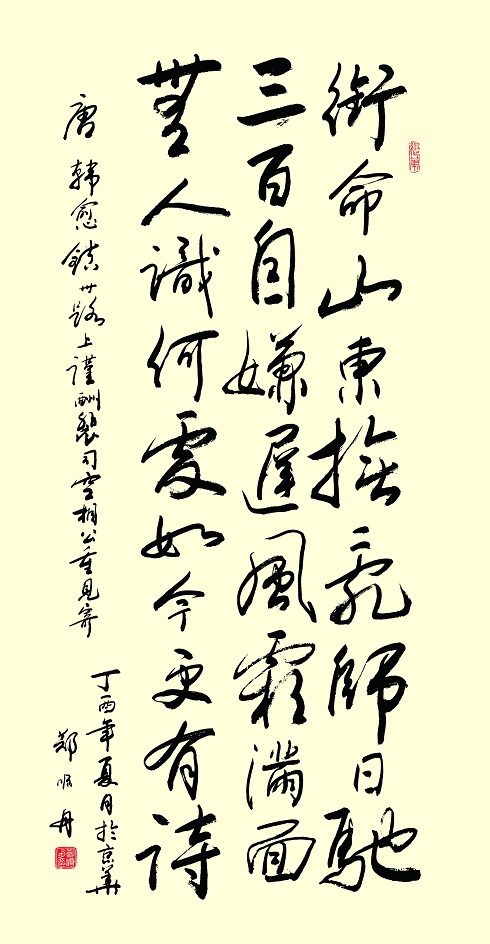 銜命山東撫亂師日馳
三百自嫌遲風霜滿面
無人識何處如今更有詩
唐韓愈鎮州路上謹酬裴司空相公重見寄
丁酉年夏月於京華
鄭 丹